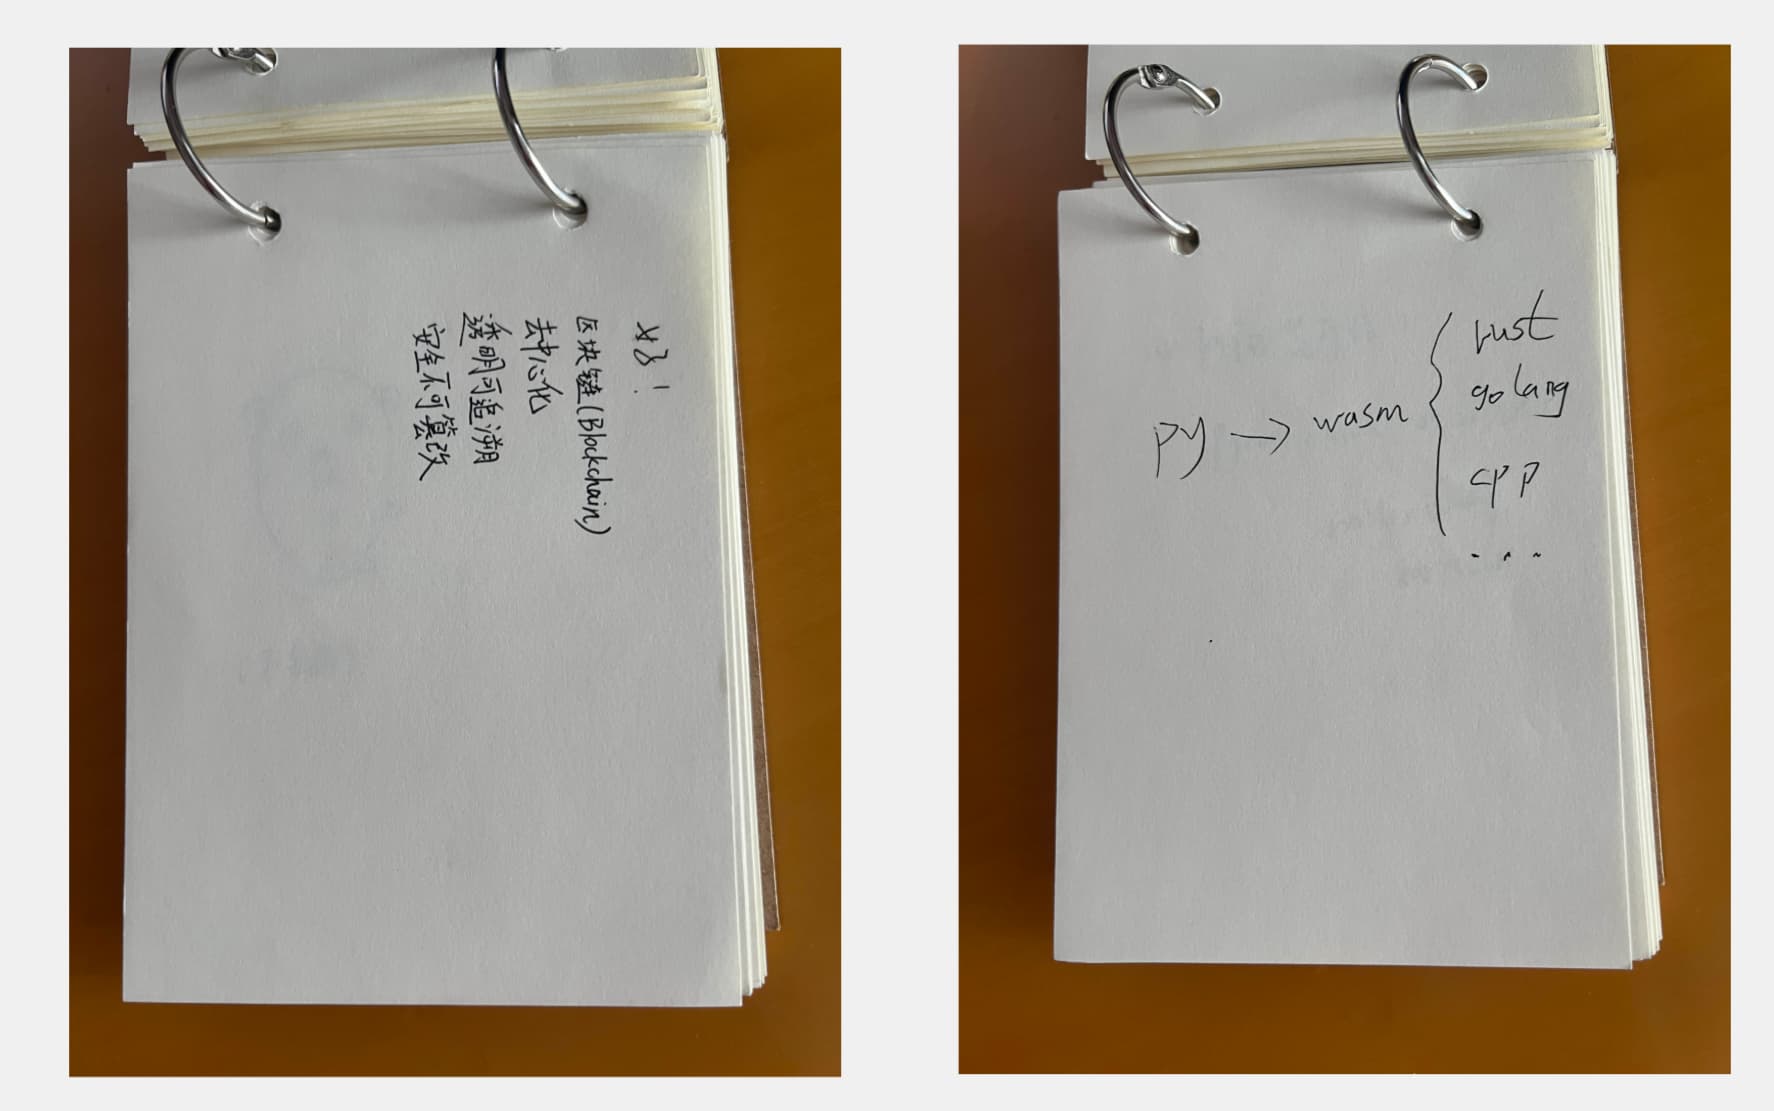 好！
区块链(Blockchain)
去中心化
透明可追溯
安全不可篡改
py → wasm {
rust
golang
cpp
...